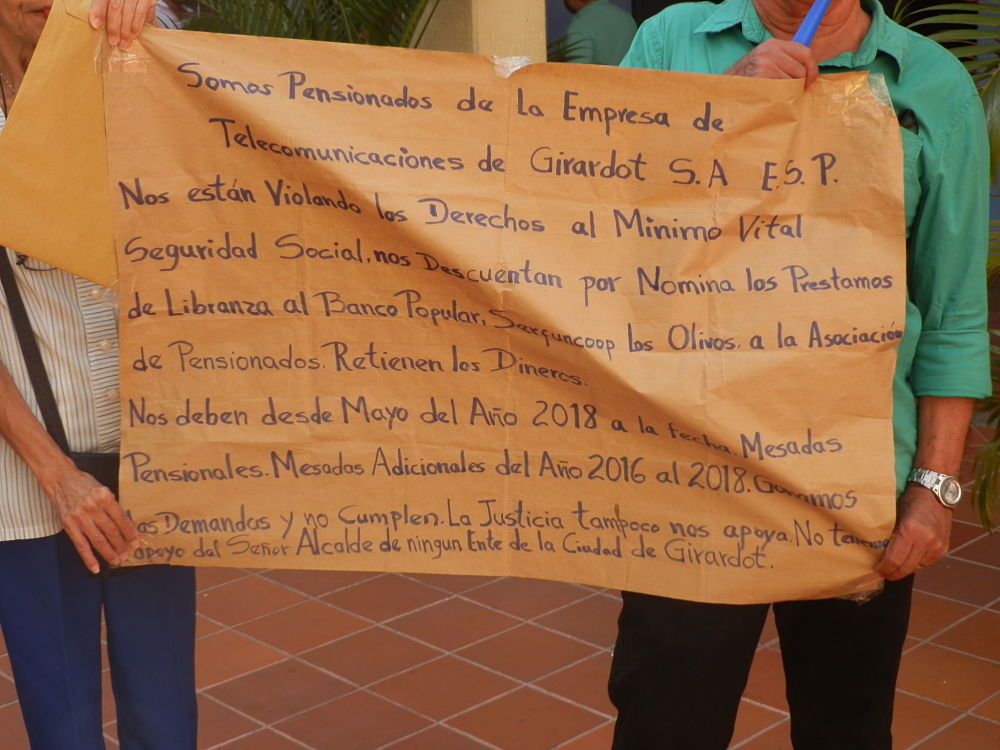 Somos Pensionados de la Empresa de
Telecomunicaciones de Girardot S.A E.S.P.
Nos están Violando los Derechos al Minimo Vital
Seguridad Social, nos Descuentan por Nomina los Prestamos
de Libranza al Banco Popular, Serfuncoop los Olivos, a la Asociación
de Pensionados. Retienen los Dineros.
Nos deben desde Mayo del Año 2018 a la fecha Mesadas
Pensionales. Mesadas Adicionales del Año 2016 al 2018. Ganamos
las Demandas y no Cumplen. La Justicia tampoco nos apoya. No tenemos
apoyo del Señor Alcalde de ningun Ente de la Ciudad de Girardot.